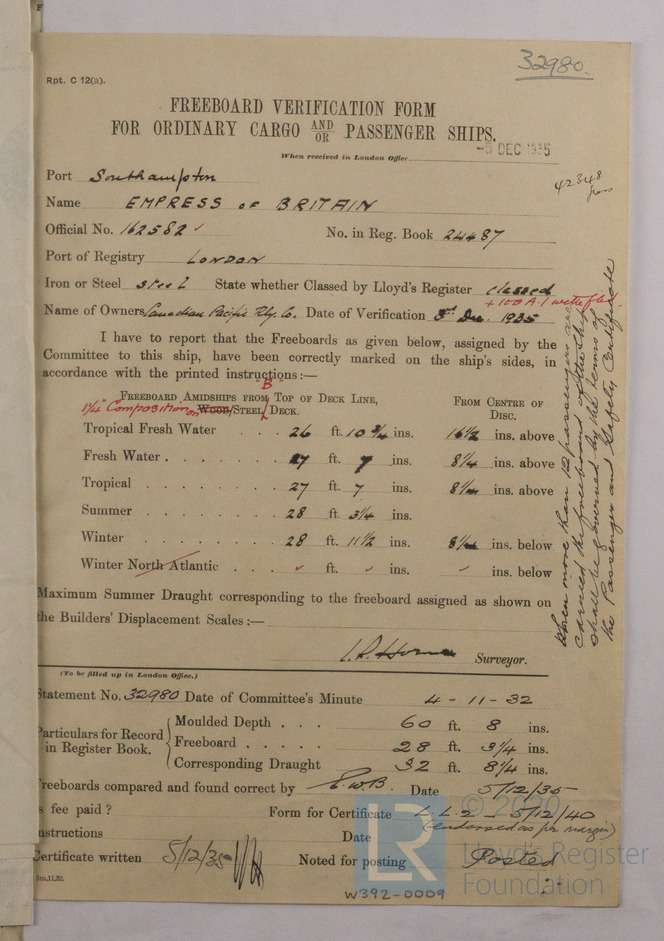 32980.
Rpt. C 12(a).
FREEBOARD VERIFICATION FORM
FOR ORDINARY CARGO AND/OR PASSENGER SHIPS.
When received in London Office
-5 DEC 1935
Port Southampton
42348
from
Name EMPRESS OF BRITAIN
Official No. 162582 ✓ No. in Reg. Book 24487
Port of Registry LONDON
Iron or Steel steel State whether Classed by Lloyd's Register classed
+100A.1 with fbd.
Name of Owners Canadian Pacific Rly. Co. Date of Verification 3rd Dec. 1935
I have to report that the Freeboards as given below, assigned by the
Committee to this ship, have been correctly marked on the ship's sides, in
accordance with the printed instructions:—
"B"
FREEBOARD AMIDSHIPS FROM TOP OF DECK LINE, FROM CENTRE OF
1¼" Composition on WOOD/STEEL DECK. DISC.
Tropical Fresh Water . . . 26 ft. 10 3/4 ins. 16½ ins. above
Fresh Water . . . . . . 27 ft. 7 ins. 8¼ ins. above
Tropical . . . . . . . 27 ft. 7 ins. 8¼ ins. above
Summer . . . . . . . 28 ft. 3¼ ins.
Winter . . . . . . . 28 ft. 11½ ins. 8¼ ins. below
Winter North Atlantic . . . ✓ ft. ✓ ins. ✓ ins. below
When more than 12 passengers are
carried the freeboard of the ship
shall be governed by the terms of
the Passenger and Safety Certificate
Maximum Summer Draught corresponding to the freeboard assigned as shown on
the Builders' Displacement Scales:—
Horne Surveyor.
(To be filled up in London Office.)
Statement No. 32980 Date of Committee's Minute 4-11-32
Particulars for Record in Register Book.
Moulded Depth . . . 60 ft. 8 ins.
Freeboard . . . . . 28 ft. 3¼ ins.
Corresponding Draught 32 ft. 8¼ ins.
Freeboards compared and found correct by E.W.B. Date 5/12/35
s fee paid? Form for Certificate L.L.2 - 5/12/40
(endorsed as per margin)
nstructions Date
Certificate written 5/12/35 Noted for posting Posted
5m.11.32.
W392-0009
LR
© 2020
Lloyd's Register
Foundation